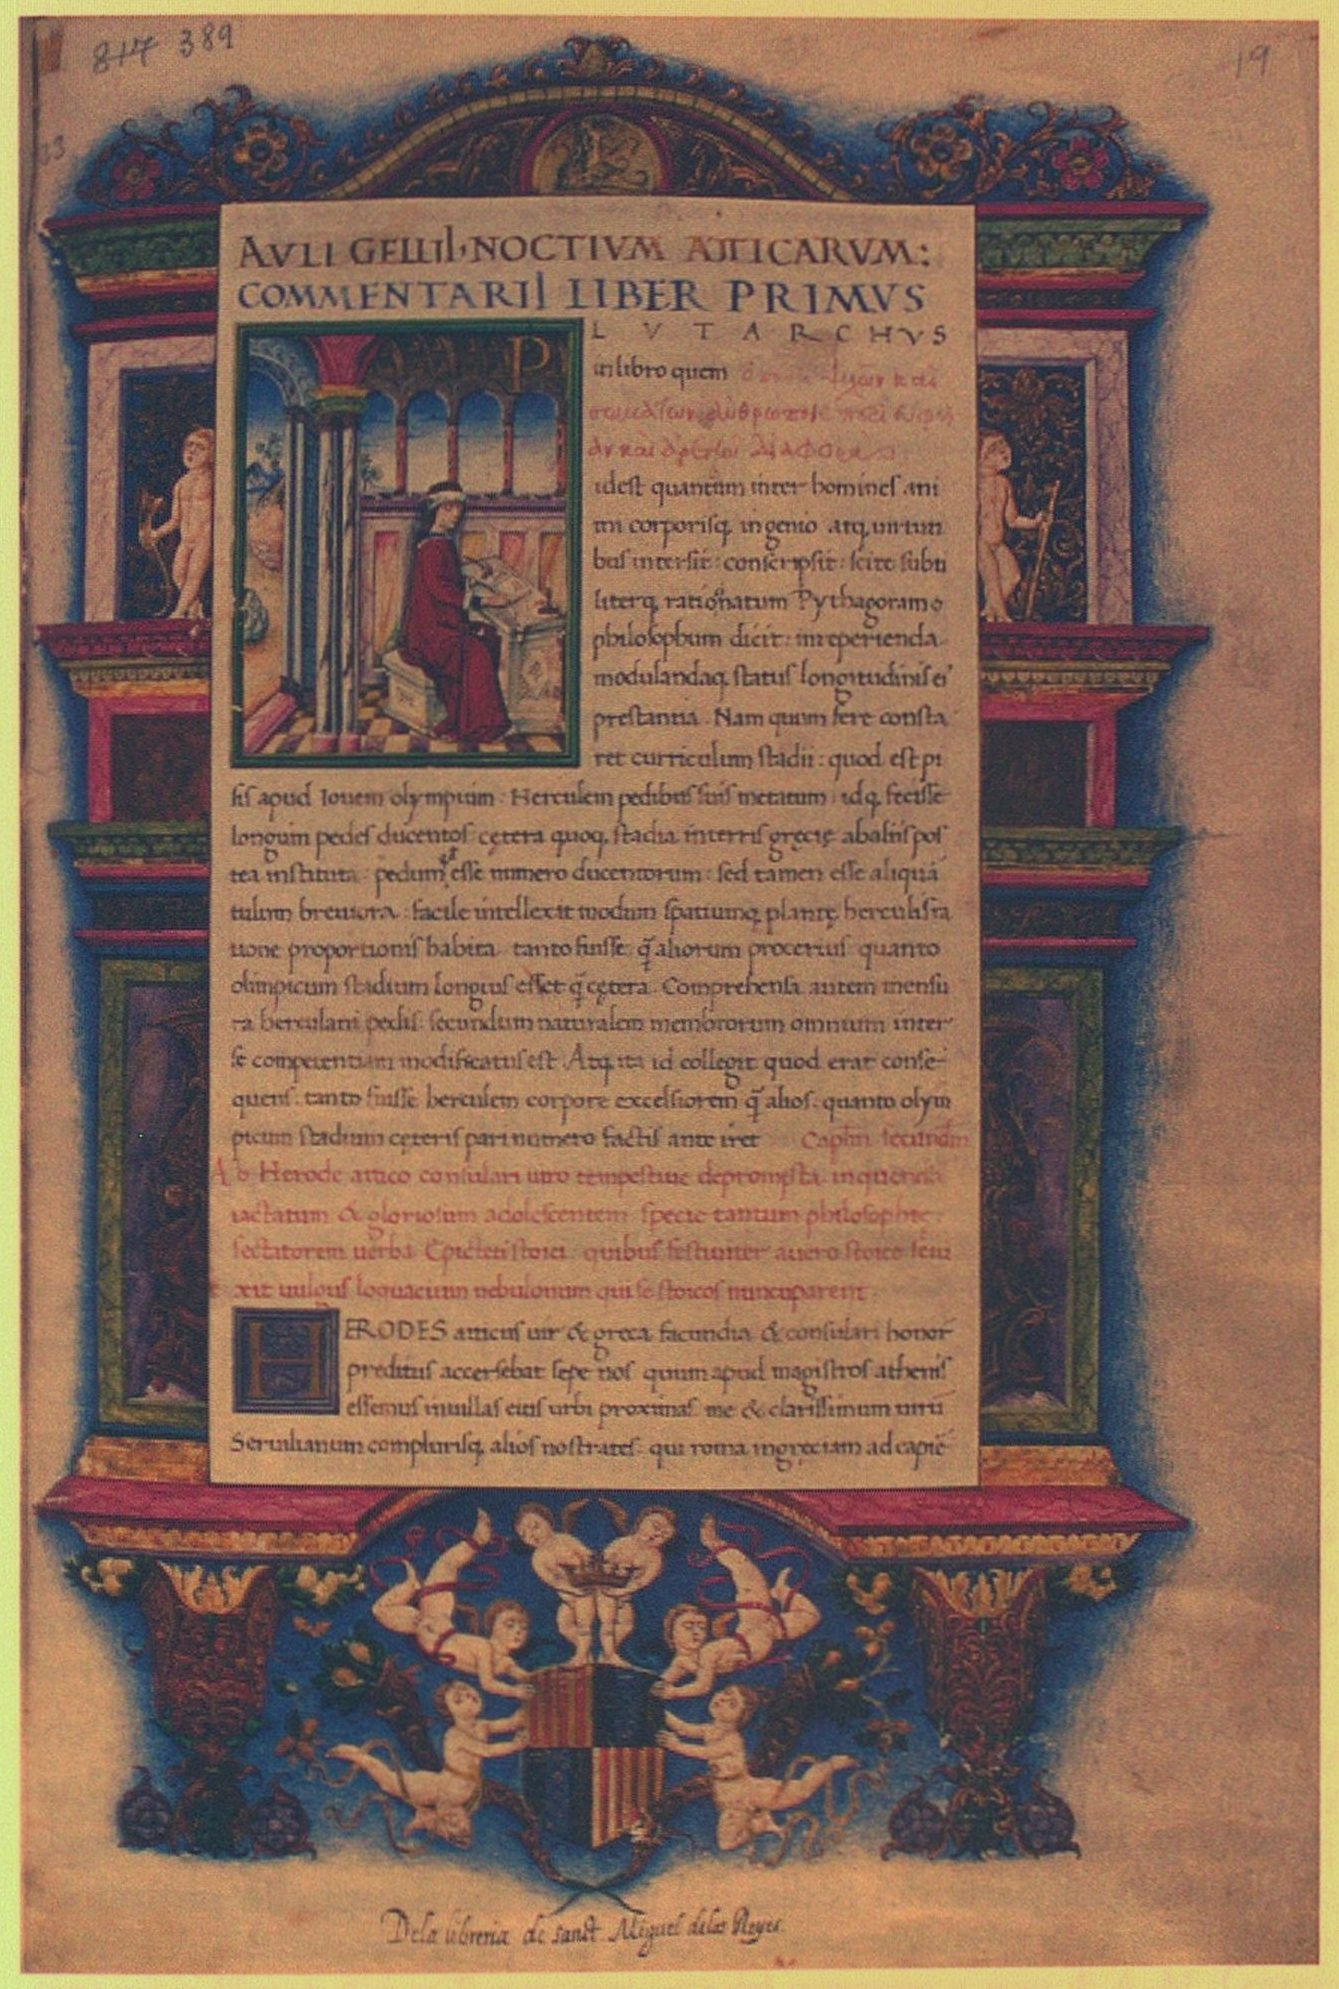 817 389
19
AVLI GELLII·NOCTIVM ATTICARVM:
COMMENTARII LIBER PRIMVS
P L V T A R C H V S
in libro quem
idest quantum inter homines ani
mi corporisq, ingenio atq, uirtuti
bus intersit: conscripsit: scite subti
literq, ratiocinatum Pythagoram
philosophum dicit: in reperienda
modulandaq, status longitudinis ei'
prestantia. Nam quum fere consta
ret curriculum stadii: quod est pi
sis apud Iouem olympium. Herculem pedibus suis metatum: idq, fecisse
longum pedes ducentos: cętera quoq, stadia interris gręcię abaliis pos
tea instituta: pedum esse numero ducentorum: sed tamen esse aliquā
tulum breuiora: facile intellexit modum spatiumq, plantę herculis ra
tione proportionis habita tanto fuisse: q̄ aliorum procerius quanto
olimpicum stadium longius esset q̄ cętera. Comprehensa autem mensu
ra herculani pedis: secundum naturalem membrorum omnium inter
se competentiam modificatus est. Atq, ita id collegit quod erat conse
quens. tanto fuisse herculem corpore excelsiorem q̄ alios. quanto olym
picum stadium cęteris pari numero factis ante iret Capl̄m secundm̄
Ab Herode attico consulari uiro tempestiue deprompta in quendā
iactatum & gloriosum adolescentem specie tantum philosophię:
sectatorem uerba Epicteti stoici quibus festiuiter auero stoico seiu
xit uulgus loquacium nebulonum qui se stoicos nuncuparent.
HERODES atticus uir & greca facundia & consulari honor
preditus accersebat sepe nos quum apud magistros athenis
essemus inuillas eius urbi proximas me & clarissimum uirū
Seruilianum complurisq, alios nostrates. qui roma ingręciam ad capiē
Dela libreria de sanct Miguel delos Reyes